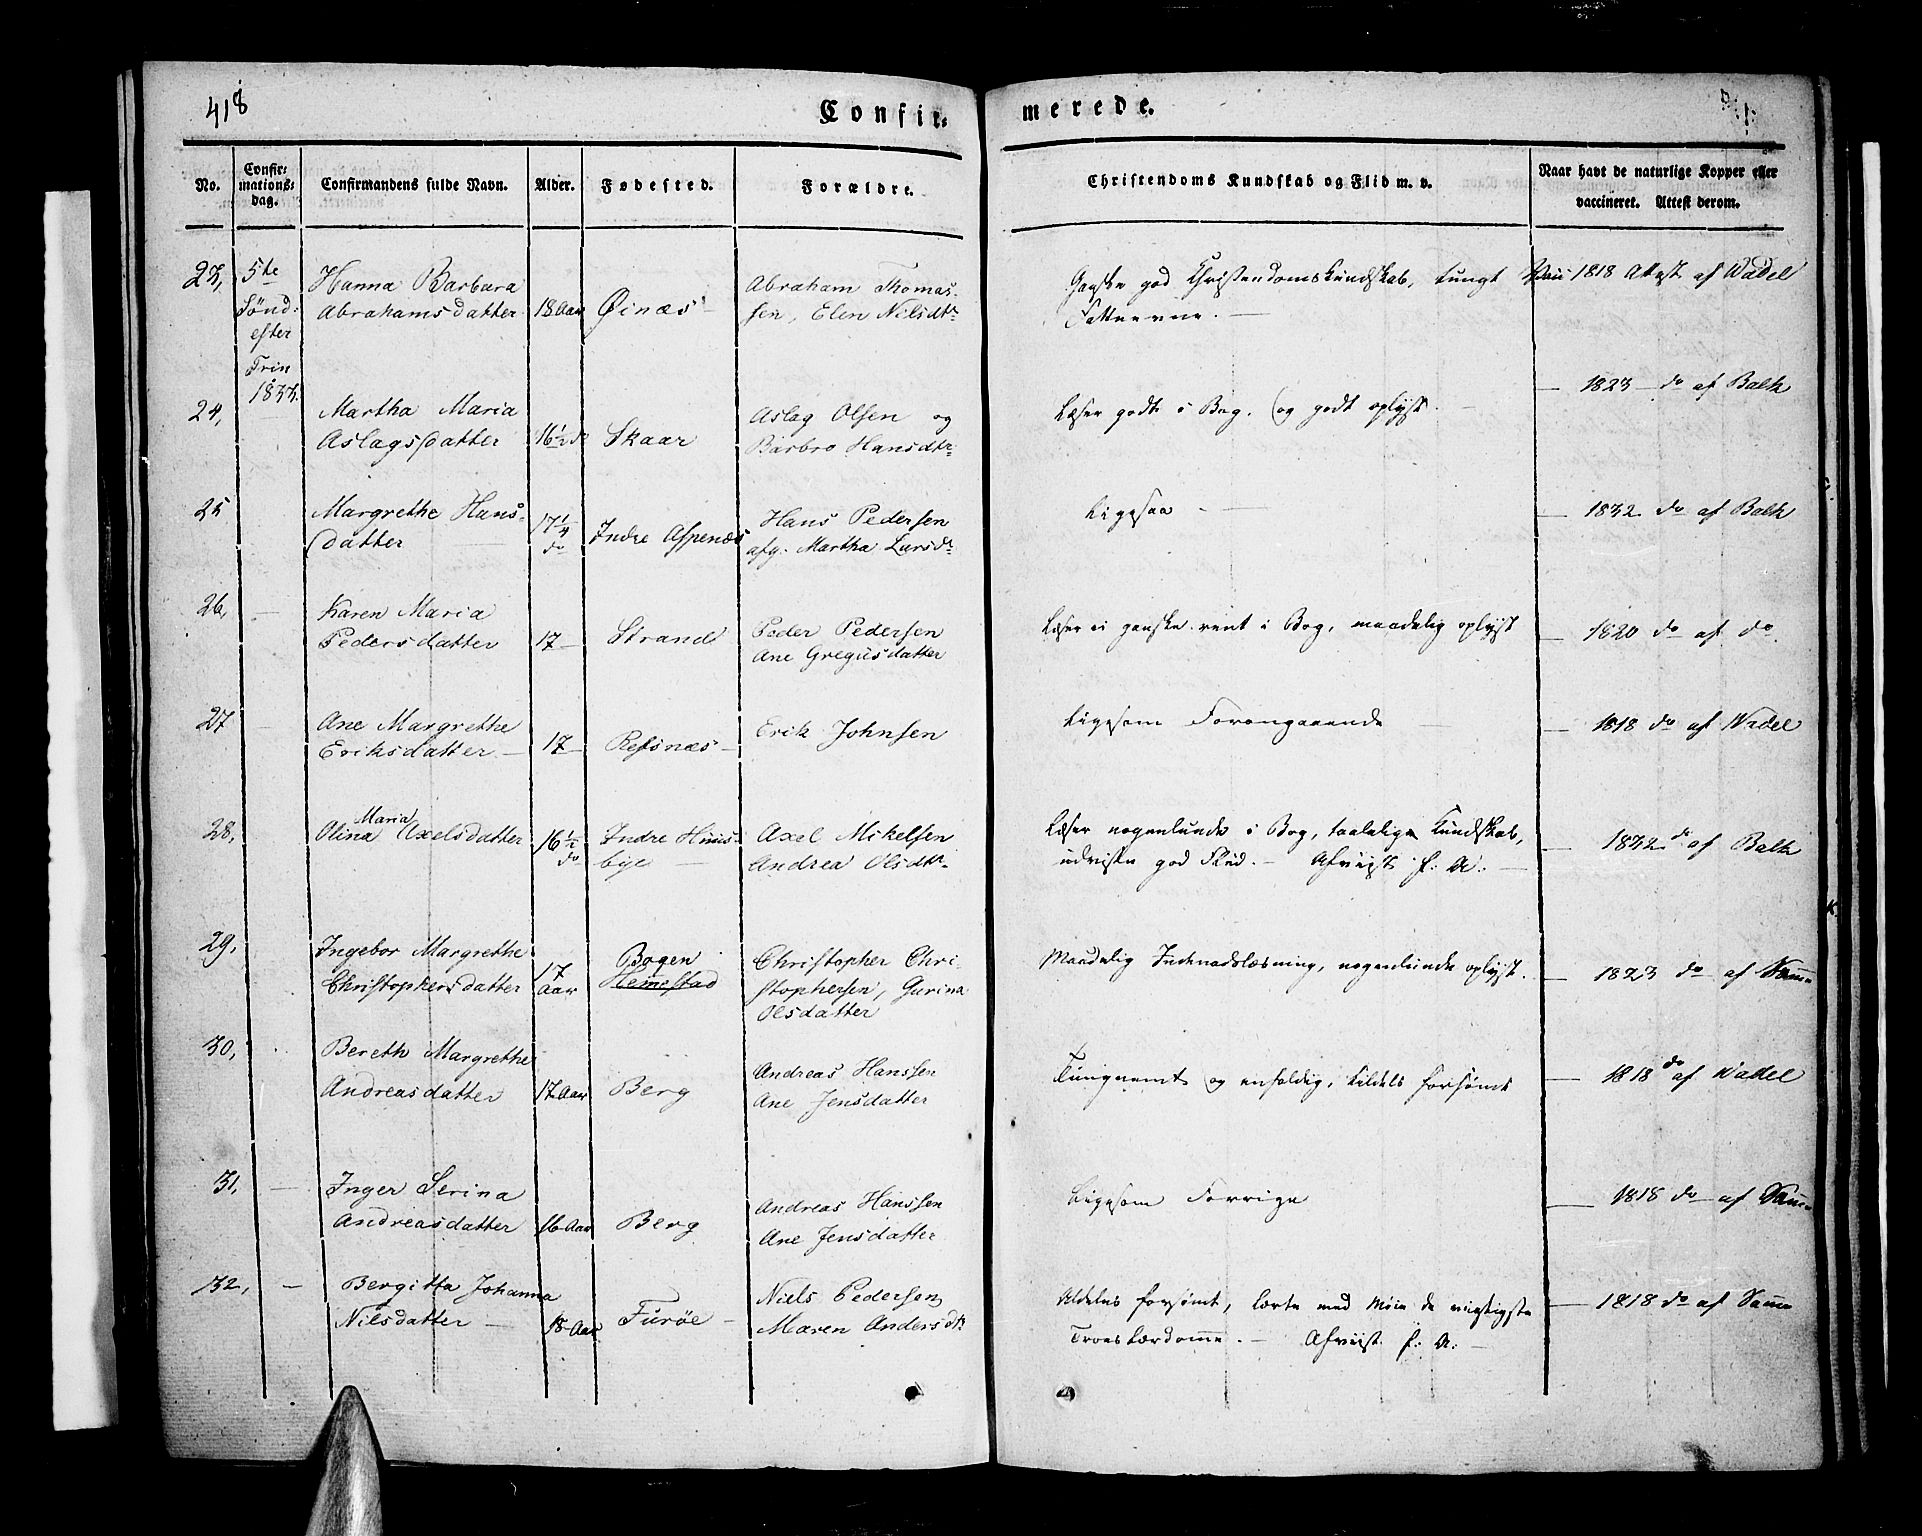 418
Confir- merede.
No.
Confir-
mations-
dag.
Confirmandens fulde Navn.
Alder.
Fødested.
Forældre.
Christendoms Kundskab og Flid m. v.
Naar havt de naturlige Kopper eller
vaccineret. Attest derom.
23, 5te Hanna Barbara Abraham Thomas- Ganske god Christendomskundskab, tungt 1818 Attest af Wadel
Sønd: Abrahamsdatter 18 Aar Øinæs sen, Elen Nilsdtr Fatteevne.
efter
Trin
1833.
24, Martha Maria Aslag Olsen og Læser godt i Bog, og godt oplyst. 1823 do af Balk
Aslagsdatter 16½ do Skaar Barbro Hansdtr
25 Margrethe Hans- 17¼ Hans Pedersen Ligesaa 1832 do af Balk
datter do Indre Aspenæs afg. Martha Larsdr
26, Karen Maria Peder Pedersen Læser ei ganske rent i Bog, maadelig oplyst 1820 do af do
Pedersdatter 17 Strand Ane Gregusdatter
27 Ane Margrethe Erik Johnsen Ligesom Foregaaende 1818 do af Wadel
Eriksdatter 17 Refsnæs
28, Olina Maria Axelsdatter 16½ Indre Huus- Axel Mikelsen Læser nogenlunde i Bog, taalelig Kundskab, 1832 do af Balk
do bye Andrea Olsdtr udviste god Flid. Afviist f: A:
29, Ingebor Margrethe 17 Bogen Christopher Chri- Maadelig Indenadslæsning, nogenlunde oplyst. 1823 do af Samme
Christophersdatter Aar Hemestad stophersen, Gurina
Olsdatter
30, Bereth Margrethe Andreas Hanssen Tungnemt og enfoldig, tildels forsømt 1818 do af Wadel
Andreasdatter 17 Aar Berg Ane Jensdatter
31, Inger Serina Andreas Hanssen Ligesom Forrige 1818 do af Samme
Andreasdatter 16 Aar Berg Ane Jensdatter
32, Bergitta Johanna Niels Pedersen Aldeles forsømt, lærte med Møie de vigtigste 1818 do af Samme
Nilsdatter 18 Aar Furøe Maren Andersdtr Troeslærdomme. Afviist. f: A: